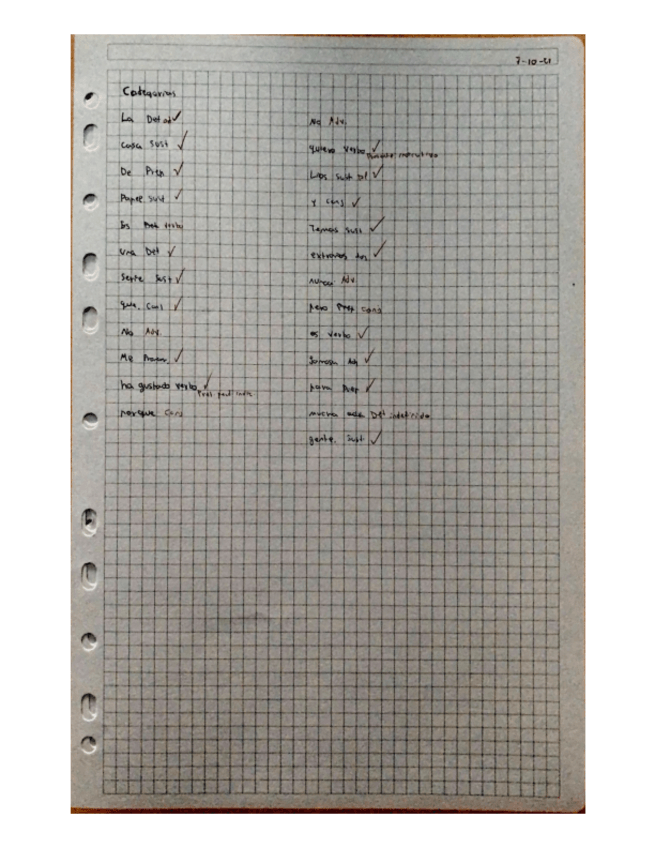 7-10-21
Categorías
La Det ✓
casa sust ✓
De Prep ✓
Papel sust ✓
Es verbo
una Det ✓
serie sust ✓
que. Conj ✓
No Adv.
Me Pronom. ✓
ha gustado verbo ✓
porque Conj
No Adv.
quiero verbo ✓
Los sust ✓
y conj ✓
Temas sust ✓
extraños Adj ✓
nunca Adv
pero Prep conj
es verbo ✓
famosa Adj ✓
para Prep ✓
mucha Det indefinido
gente. sust ✓